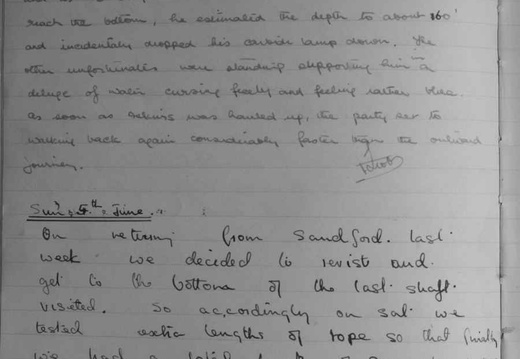 reach the bottom, he estimated the depth to about 160'
and incidentally dropped his carbide lamp down. The
other unfortunates were standing supporting him in a
deluge of water cursing freely and feeling rather blue.
as soon as was hauled up, the party set to
walking back again considerably faster than the outward
journey.
Sun: 5th: June.
On returning from Sandford. last
week we decided to revisit and
get to the bottom of the last shaft
visited. So accordingly on Sat we
tested extra lengths of rope so that finally
we had a